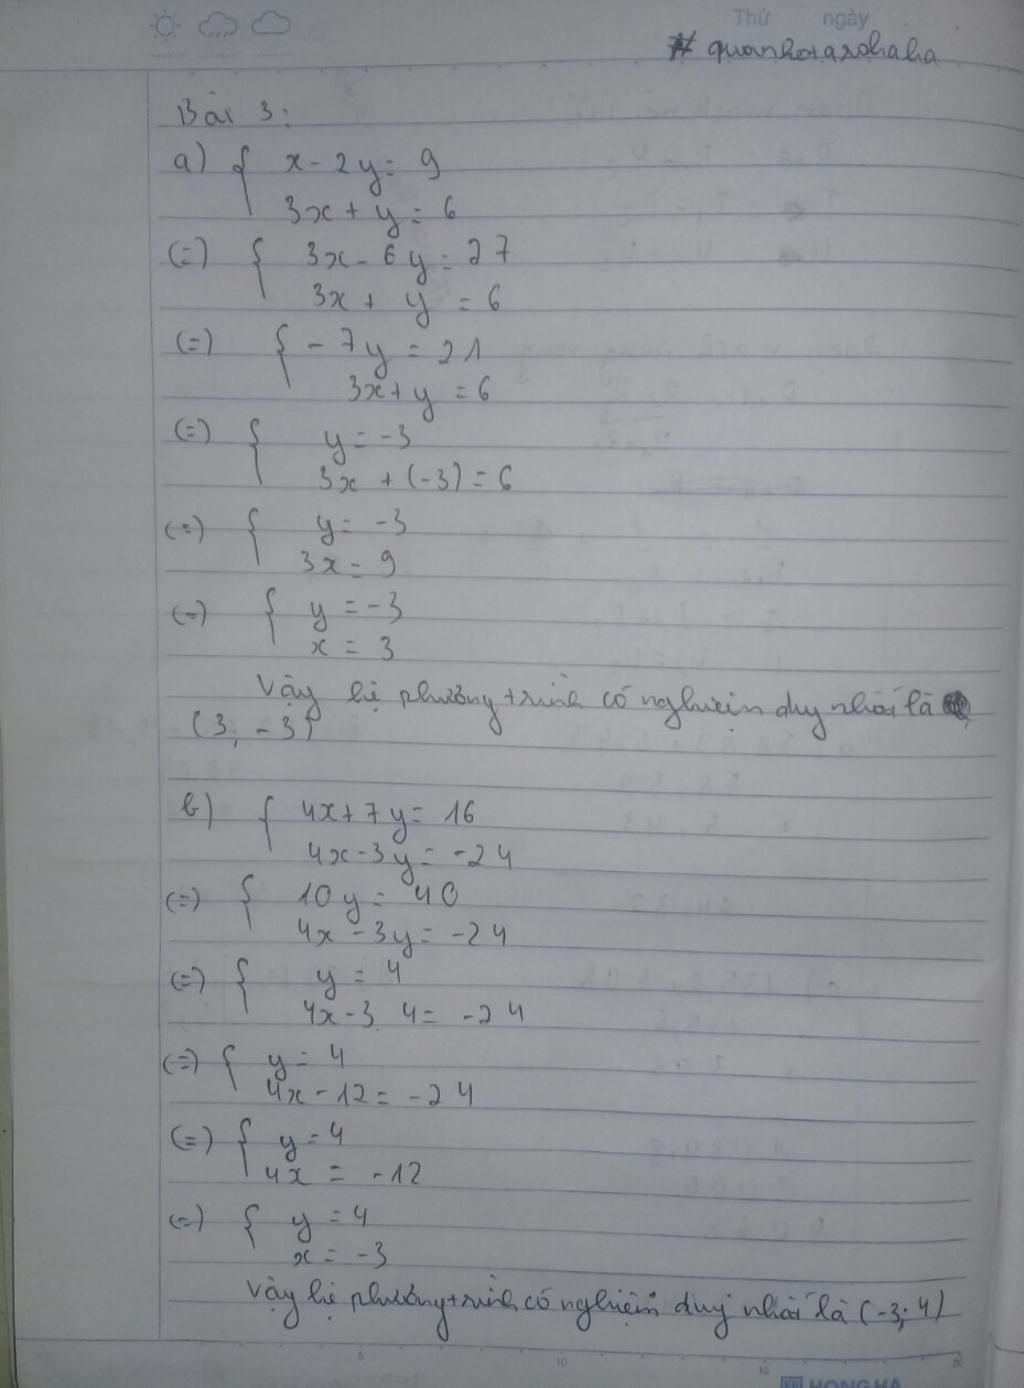 Thứ ngày
# quanhotarohaha
Bài 3:
a) { x - 2y = 9
3x + y = 6
(=) { 3x - 6y = 27
3x + y = 6
(=) { - 7y = 21
3x + y = 6
(=) { y = -3
3x + (-3) = 6
(=) { y = -3
3x = 9
(=) { y = -3
x = 3
Vậy hệ phương trình có nghiệm duy nhất là
(3; -3)
b) { 4x + 7y = 16
4x - 3y = -24
(=) { 10y = 40
4x - 3y = -24
(=) { y = 4
4x - 3 4 = -24
(=) { y = 4
4x - 12 = -24
(=) { y = 4
4x = -12
(=) { y = 4
x = -3
Vậy hệ phương trình có nghiệm duy nhất là (-3; 4)
5 10 15 20
HONG HA